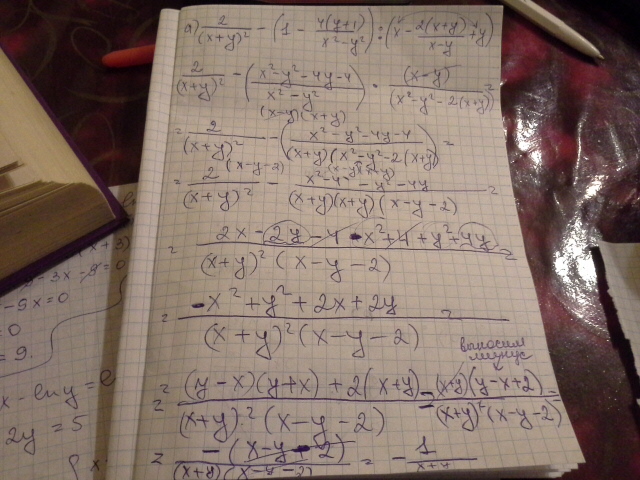 а) 2/(x+y)² - (1 - 4(y+1)/x²-y²) : (x - 2(x+y)/x-y + y)
2/(x+y)² - (x²-y²-4y-4/x²-y²) · (x-y)/(x²-y²-2(x+y)) =
(x-y)(x+y)
= 2/(x+y)² - (x²-y²-4y-4/(x+y)(x²-y²-2(x+y)) =
= 2/(x+y)² - /(x+y)(x+y)(x-y-2) =
= 2x-2y-4-x²+4+y²+4y/(x+y)²(x-y-2) =
= -x²+y²+2x+2y/(x+y)²(x-y-2) =
выносим
минус
= (y-x)(y+x)+2(x+y)/(x+y)²(x-y-2) = (x+y)(y-x+2)/(x+y)²(x-y-2) =
= -(x-y-2)/(x+y)(x-y-2) = - 1/x+y
x+3)
-3x-9=0
-9x=0
=0
=9.
x - ln y = e
2y = 5